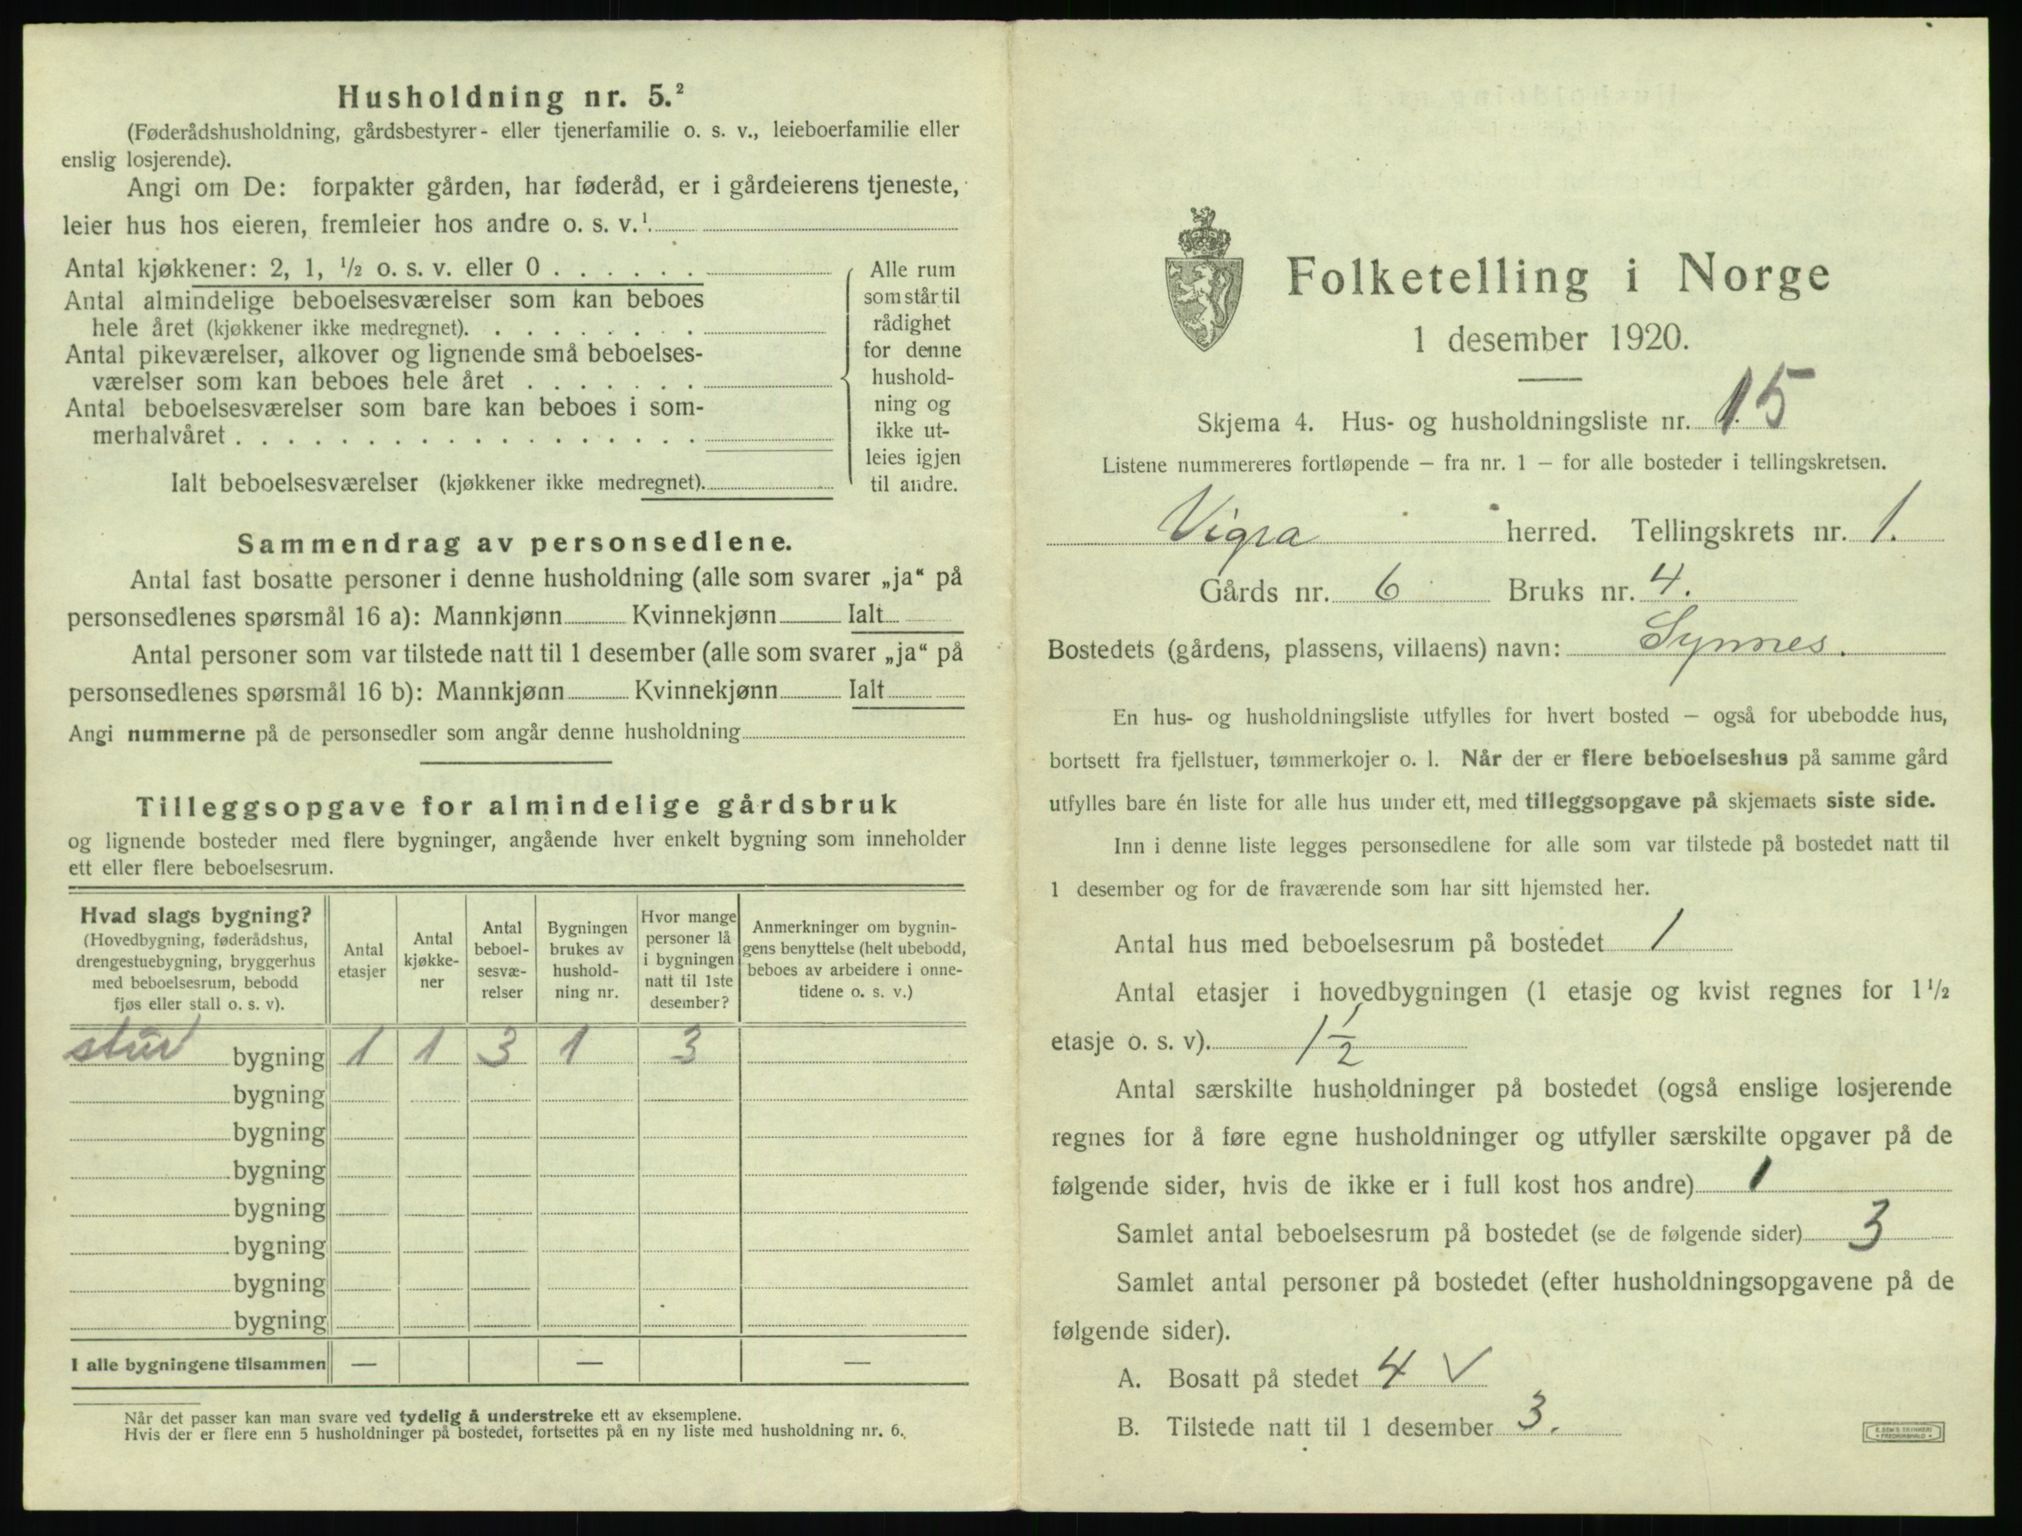 Husholdning nr. 5.²
(Føderådshusholdning, gårdsbestyrer- eller tjenerfamilie o. s. v., leieboerfamilie eller
enslig losjerende).
Angi om De: forpakter gården, har føderåd, er i gårdeierens tjeneste,
leier hus hos eieren, fremleier hos andre o. s. v.¹
Antal kjøkkener: 2, 1, ½ o. s. v. eller 0 . . . . . .
Antal almindelige beboelsesværelser som kan beboes
hele året (kjøkkener ikke medregnet). . . . . . . .
Antal pikeværelser, alkover og lignende små beboelses-
værelser som kan beboes hele året . . . . . . .
Antal beboelsesværelser som bare kan beboes i som-
merhalvåret . . . . . . . . . . . . . . . . . .
Ialt beboelsesværelser (kjøkkener ikke medregnet).
Alle rum
som står til
rådighet
for denne
hushold-
ning og
ikke ut-
leies igjen
til andre.
Sammendrag av personsedlene.
Antal fast bosatte personer i denne husholdning (alle som svarer „ja“ på
personsedlenes spørsmål 16 a): Mannkjønn Kvinnekjønn Ialt
Antal personer som var tilstede natt til 1 desember (alle som svarer „ja“ på
personsedlenes spørsmål 16 b): Mannkjønn Kvinnekjønn Ialt
Angi nummerne på de personsedler som angår denne husholdning
Tilleggsopgave for almindelige gårdsbruk
og lignende bosteder med flere bygninger, angående hver enkelt bygning som inneholder
ett eller flere beboelsesrum.
Hvad slags bygning?
(Hovedbygning, føderådshus,
drengestuebygning, bryggerhus
med beboelsesrum, bebodd
fjøs eller stall o. s. v).
Antal
etasjer
Antal
kjøkke-
ner
Antal
beboel-
sesvæ-
relser
Bygningen
brukes av
hushold-
ning nr.
Hvor mange
personer lå
i bygningen
natt til 1ste
desember?
Anmerkninger om bygnin-
gens benyttelse (helt ubebodd,
beboes av arbeidere i onne-
tidene o. s. v.)
bygning 1 1 3 1 3
bygning
bygning
bygning
bygning
bygning
bygning
bygning
I alle bygningene tilsammen — — —
Når det passer kan man svare ved tydelig å understreke ett av eksemplene.
Hvis der er flere enn 5 husholdninger på bostedet, fortsettes på en ny liste med husholdning nr. 6.
Folketelling i Norge
1 desember 1920.
Skjema 4. Hus- og husholdningsliste nr. 15
Listene nummereres fortløpende – fra nr. 1 – for alle bosteder i tellingskretsen.
Vigra herred. Tellingskrets nr. 1.
Gårds nr. 6 Bruks nr. 4.
Bostedets (gårdens, plassens, villaens) navn: Synnes.
En hus- og husholdningsliste utfylles for hvert bosted – også for ubebodde hus,
bortsett fra fjellstuer, tømmerkojer o. l. Når der er flere beboelseshus på samme gård
utfylles bare én liste for alle hus under ett, med tilleggsopgave på skjemaets siste side.
Inn i denne liste legges personsedlene for alle som var tilstede på bostedet natt til
1 desember og for de fraværende som har sitt hjemsted her.
Antal hus med beboelsesrum på bostedet 1
Antal etasjer i hovedbygningen (1 etasje og kvist regnes for 1½
etasje o. s. v). 1½
Antal særskilte husholdninger på bostedet (også enslige losjerende
regnes for å føre egne husholdninger og utfyller særskilte opgaver på de
følgende sider, hvis de ikke er i full kost hos andre) 1
Samlet antal beboelsesrum på bostedet (se de følgende sider) 3
Samlet antal personer på bostedet (efter husholdningsopgavene på de
følgende sider).
A. Bosatt på stedet 4 √
B. Tilstede natt til 1 desember 3.